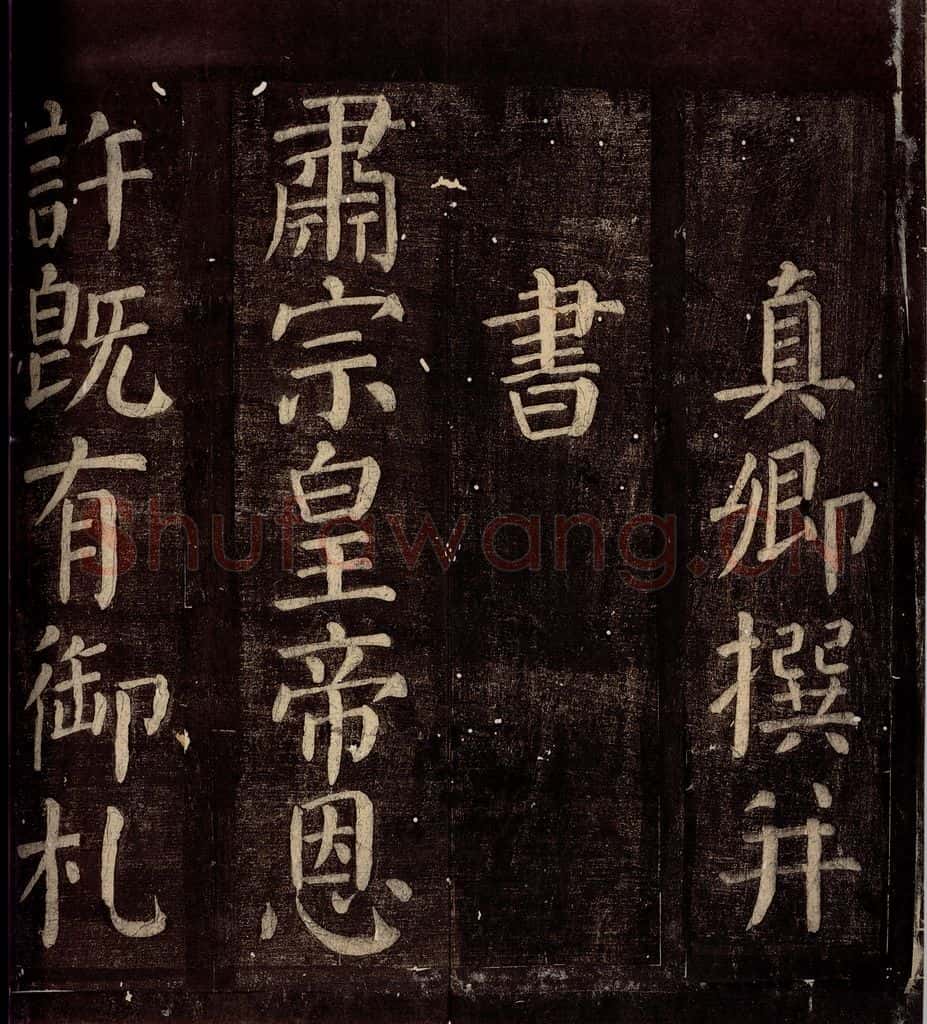 真卿撰并
書
肅宗皇帝恩
許既有御札
Shufawang.cn